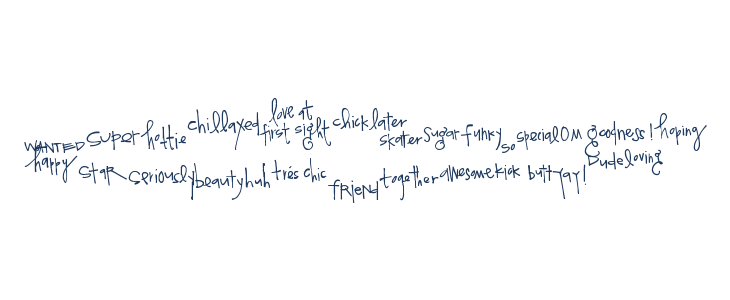 WANTED super hottie chillaxed love at first sight chick later skater sugar funky so special OM goodness! hoping
happy STAR seriously beauty huh très chic FRIEND together awesome kick butt yay! Dude loving